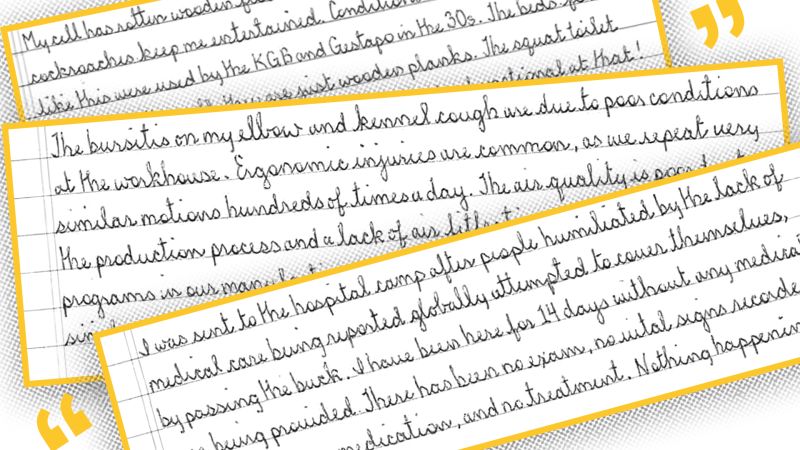 My cell has rotten wooden
cockroaches keep me entertained. Condition
like this were used by the KGB and Gestapo in the 30s. The beds
are just wooden planks. The squat toilet
at that!
The bursitis on my elbow and kennel cough are due to poor conditions
at the workhouse. Ergonomic injuries are common, as we repeat very
similar motions hundreds of times a day. The air quality is poor
the production process and a lack of air
programs in our
I was sent to the hospital camp after people humiliated by the lack of
medical care being reported globally attempted to cover themselves,
by passing the buck. I have been here for 14 days without any medica
being provided. There has been no exam, no vital signs recorde
medication, and no treatment. Nothing happenin